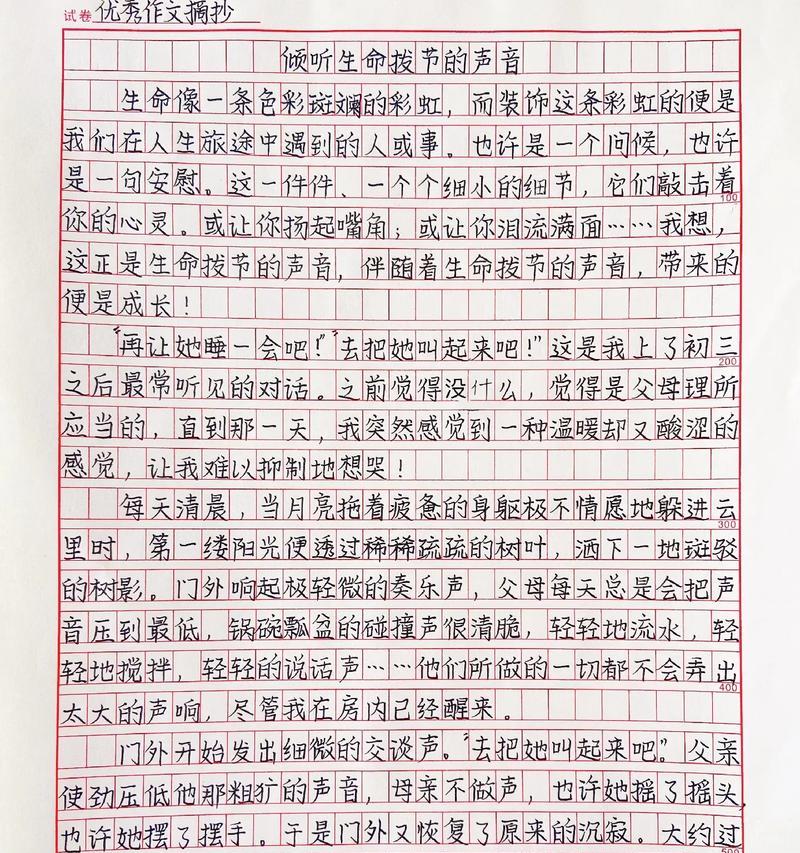 试卷 优秀作文摘抄
倾听生命拨节的声音
生命像一条色彩斑斓的彩虹，而装饰这条彩虹的便是
我们在人生旅途中遇到的人或事。也许是一个问候，也许
是一句安慰。这一件件、一个个细小的细节，它们敲击着
100
你的心灵。或让你扬起嘴角；或让你泪流满面……我想，
这正是生命拨节的声音，伴随着生命拨节的声音，带来的
便是成长！
“再让她睡一会吧！”“去把她叫起来吧！”这是我上了初三
200
之后最常听见的对话。之前觉得没什么，觉得是父母理所
应当的，直到那一天，我突然感觉到一种温暖却又酸涩的
感觉，让我难以抑制地想哭！
每天清晨，当月亮拖着疲惫的身躯极不情愿地躲进云
300
里时，第一缕阳光便透过稀稀疏疏的树叶，洒下一地斑驳
的树影。门外响起极轻微的奏乐声，父母每天总是会把声
音压到最低，锅碗瓢盆的碰撞声很清脆，轻轻地流水，轻
轻地搅拌，轻轻的说话声……他们所做的一切都不会弄出
400
太大的声响，尽管我在房内已经醒来。
门外开始发出细微的交谈声。“去把她叫起来吧。”父亲
使劲压低他那粗犷的声音，母亲不做声，也许她摇了摇头，
也许她摆了摆手。于是门外又恢复了原来的沉寂。大约过
500